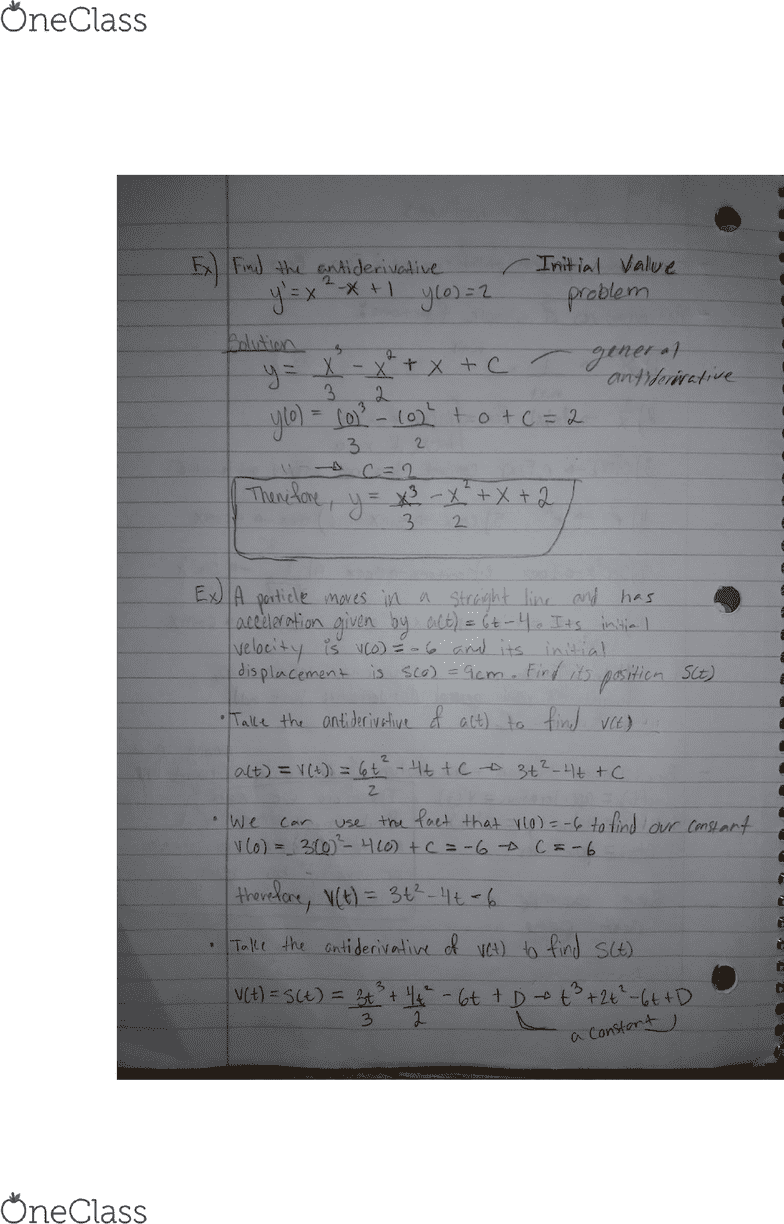 OneClass
Ex) Find the antiderivative
Initial Value
y' = x² - x + 1 y(0) = 2
problem
Solution
y = x³/3 - x²/2 + x + C
general
antiderivative
y(0) = (0)³/3 - (0)²/2 + 0 + C = 2
→ C = 2
Therefore, y = x³/3 - x²/2 + x + 2
Ex) A particle moves in a straght line and has
acceleration given by a(t) = 6t - 4. Its initial
velocity is v(0) = -6 and its initial
displacement is s(0) = 9cm. Find its position s(t)
• Take the antiderivative of a(t) to find v(t)
a(t) = v(t) = 6t²/2 - 4t + C → 3t² - 4t + C
• We can use the fact that v(0) = -6 to find our constant
v(0) = 3(0)² - 4(0) + C = -6 → C = -6
therefore, v(t) = 3t² - 4t - 6
• Take the antiderivative of v(t) to find s(t)
v(t) = s(t) = 3t³/3 + 4t²/2 - 6t + D → t³ + 2t² - 6t + D
a constant
OneClass